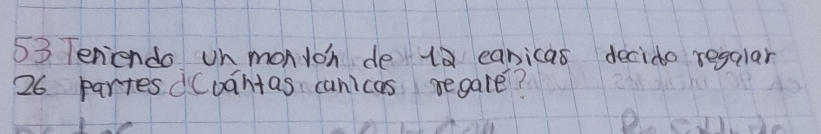 53 Teniendo un montón de 12 canicas decido regalar
26 partes ¿Cuántas canicas regalé?